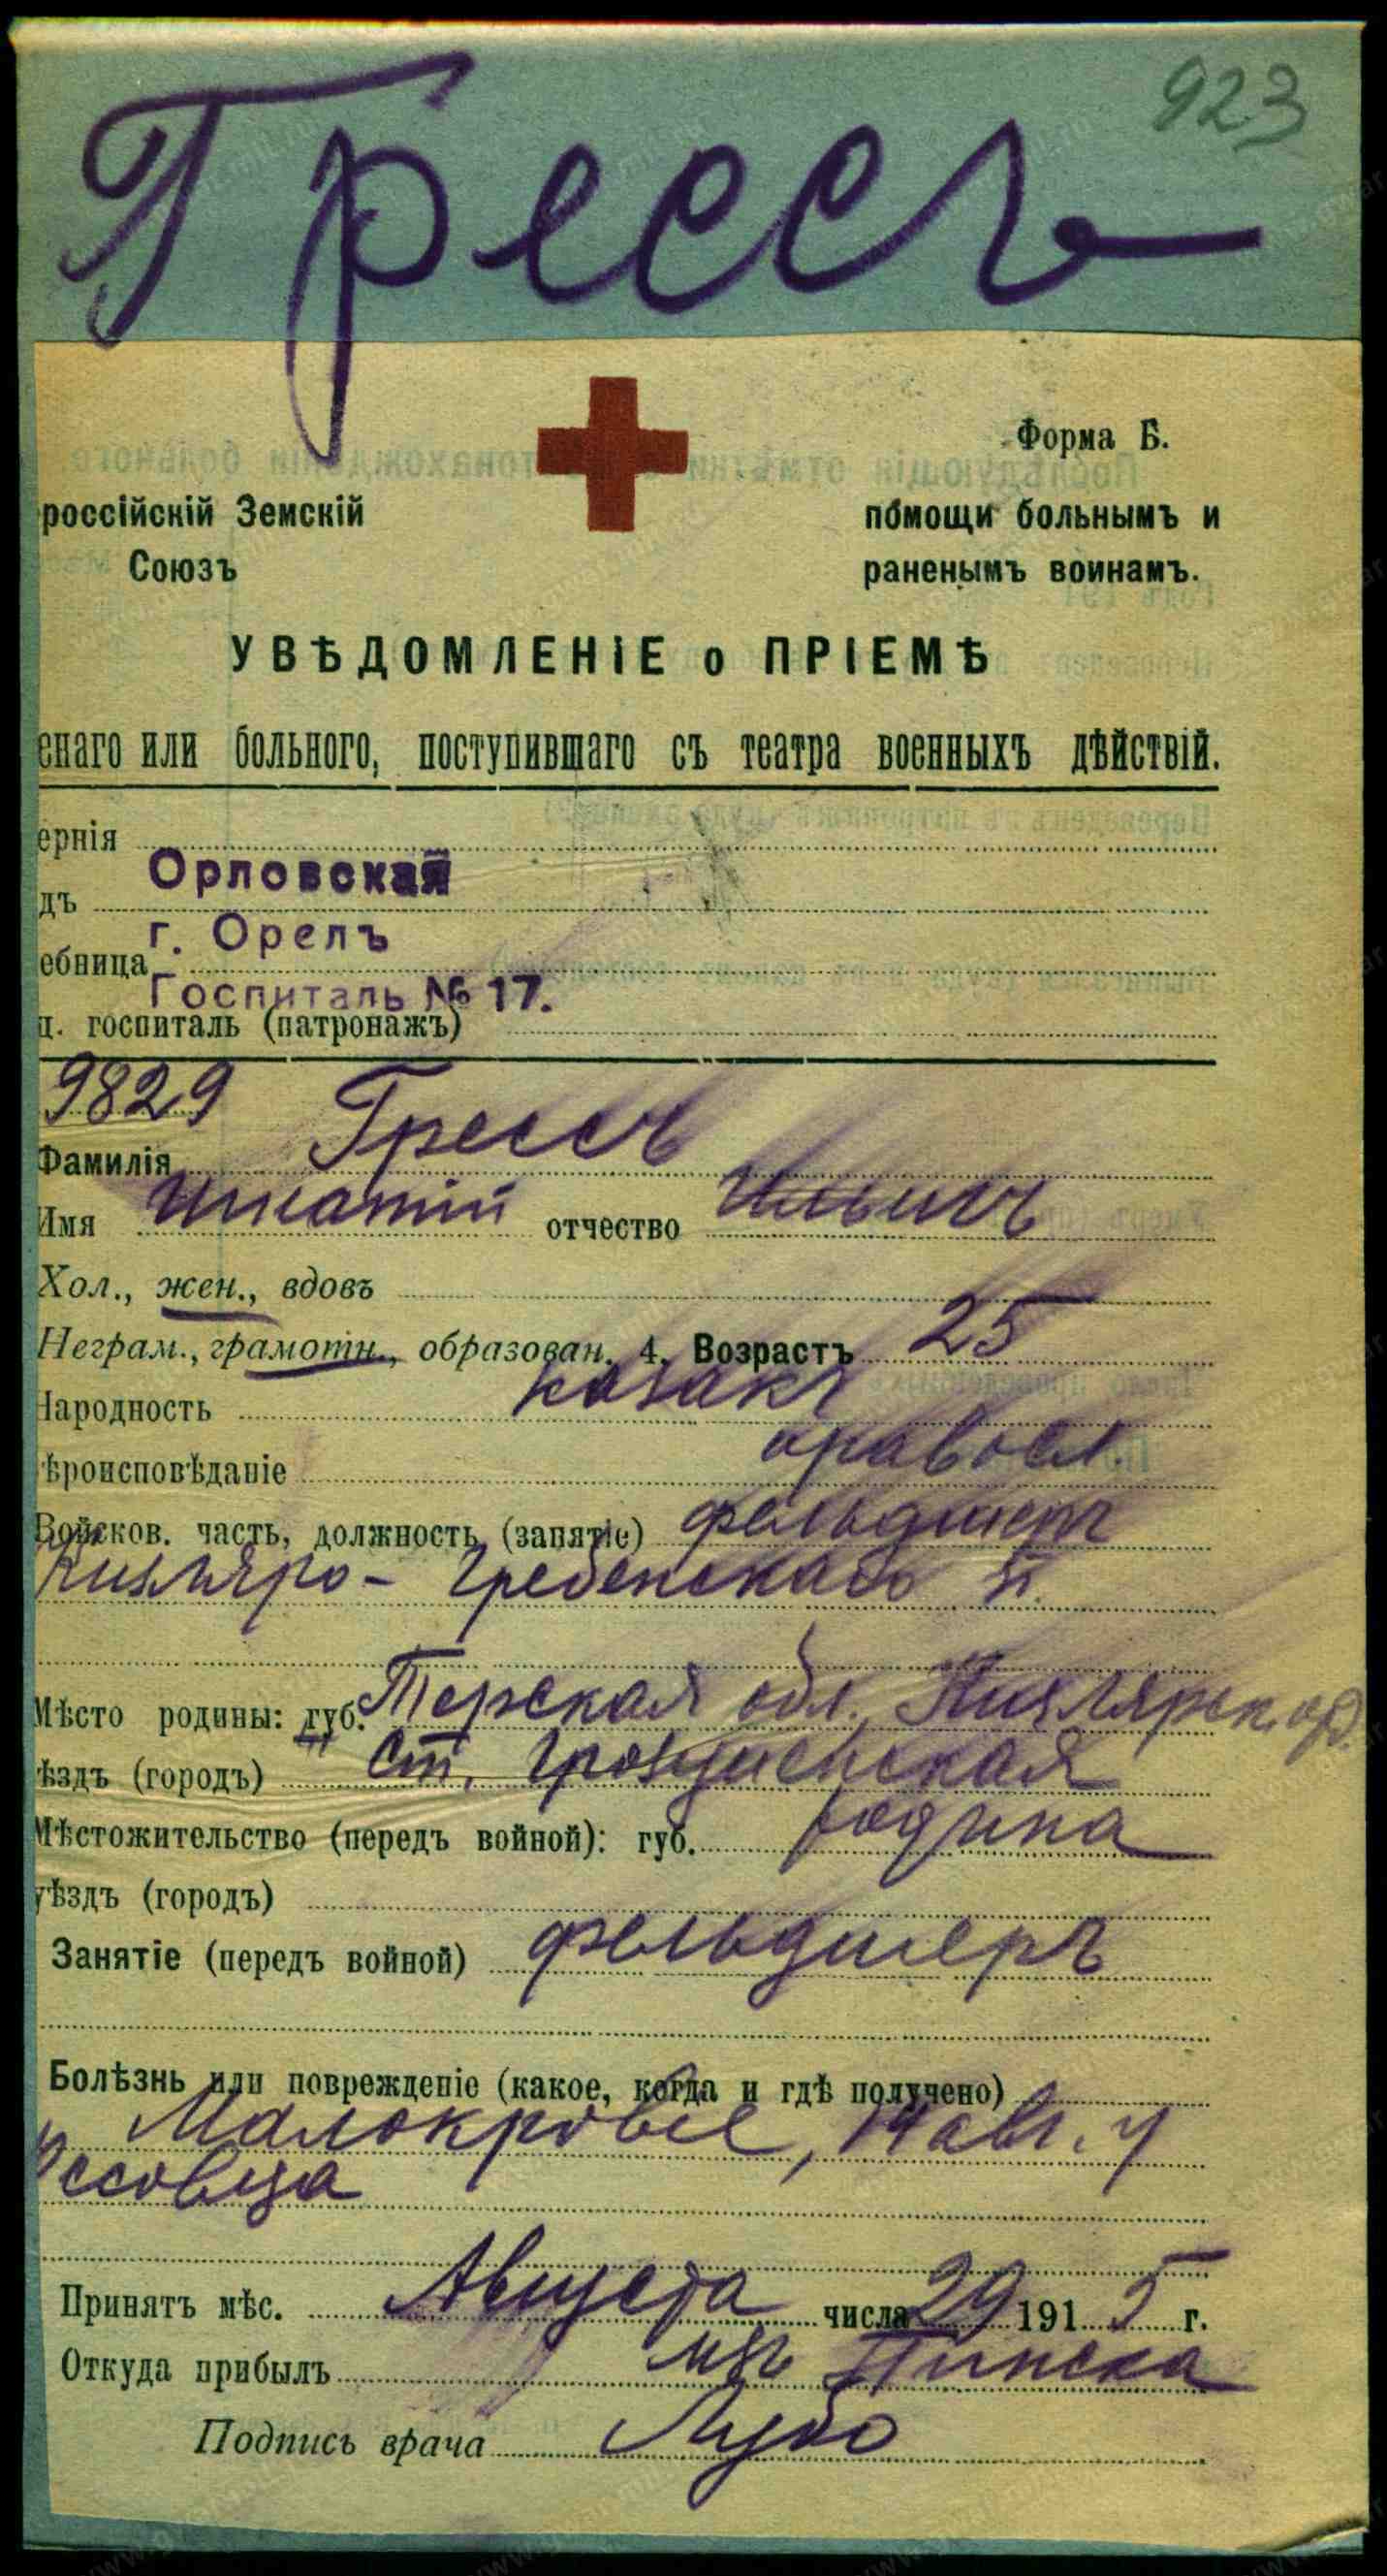 923
Грессъ
Форма Б.
россійскій Земскій
помощи больнымъ и
Союзъ
раненымъ воинамъ.
УВѢДОМЛЕНІЕ о ПРІЕМѢ
енаго или больного, поступившаго съ театра военныхъ дѣйствій.
ернія
Орловская
дъ
г. Орелъ
ебница
Госпиталь № 17.
ц. госпиталь (патронажъ)
9829
Фамилія Грессъ
Имя Игнатій отчество Ильичъ
Хол., жен., вдовъ
Неграм., грамотн., образован. 4. Возрастъ 25
Народность казакъ
ѣроисповѣданіе правосл.
Войсков. часть, должность, (занятіе) фельдшеръ
Кизляро-Гребенскаго п.
Мѣсто родины: губ. Терская обл., Кизлярск. од.
ѣздъ (городъ) ст.
Мѣстожительство (передъ войной): губ. родина
уѣздъ (городъ)
Занятіе (передъ войной) фельдшеръ
Болѣзнь или поврежденіе (какое, когда и гдѣ получено)
Малокровіе, 14 авг. у
ссовца
Принятъ мѣс. Августа числа 29 1915 г.
Откуда прибылъ изъ Пинска
Подпись врача